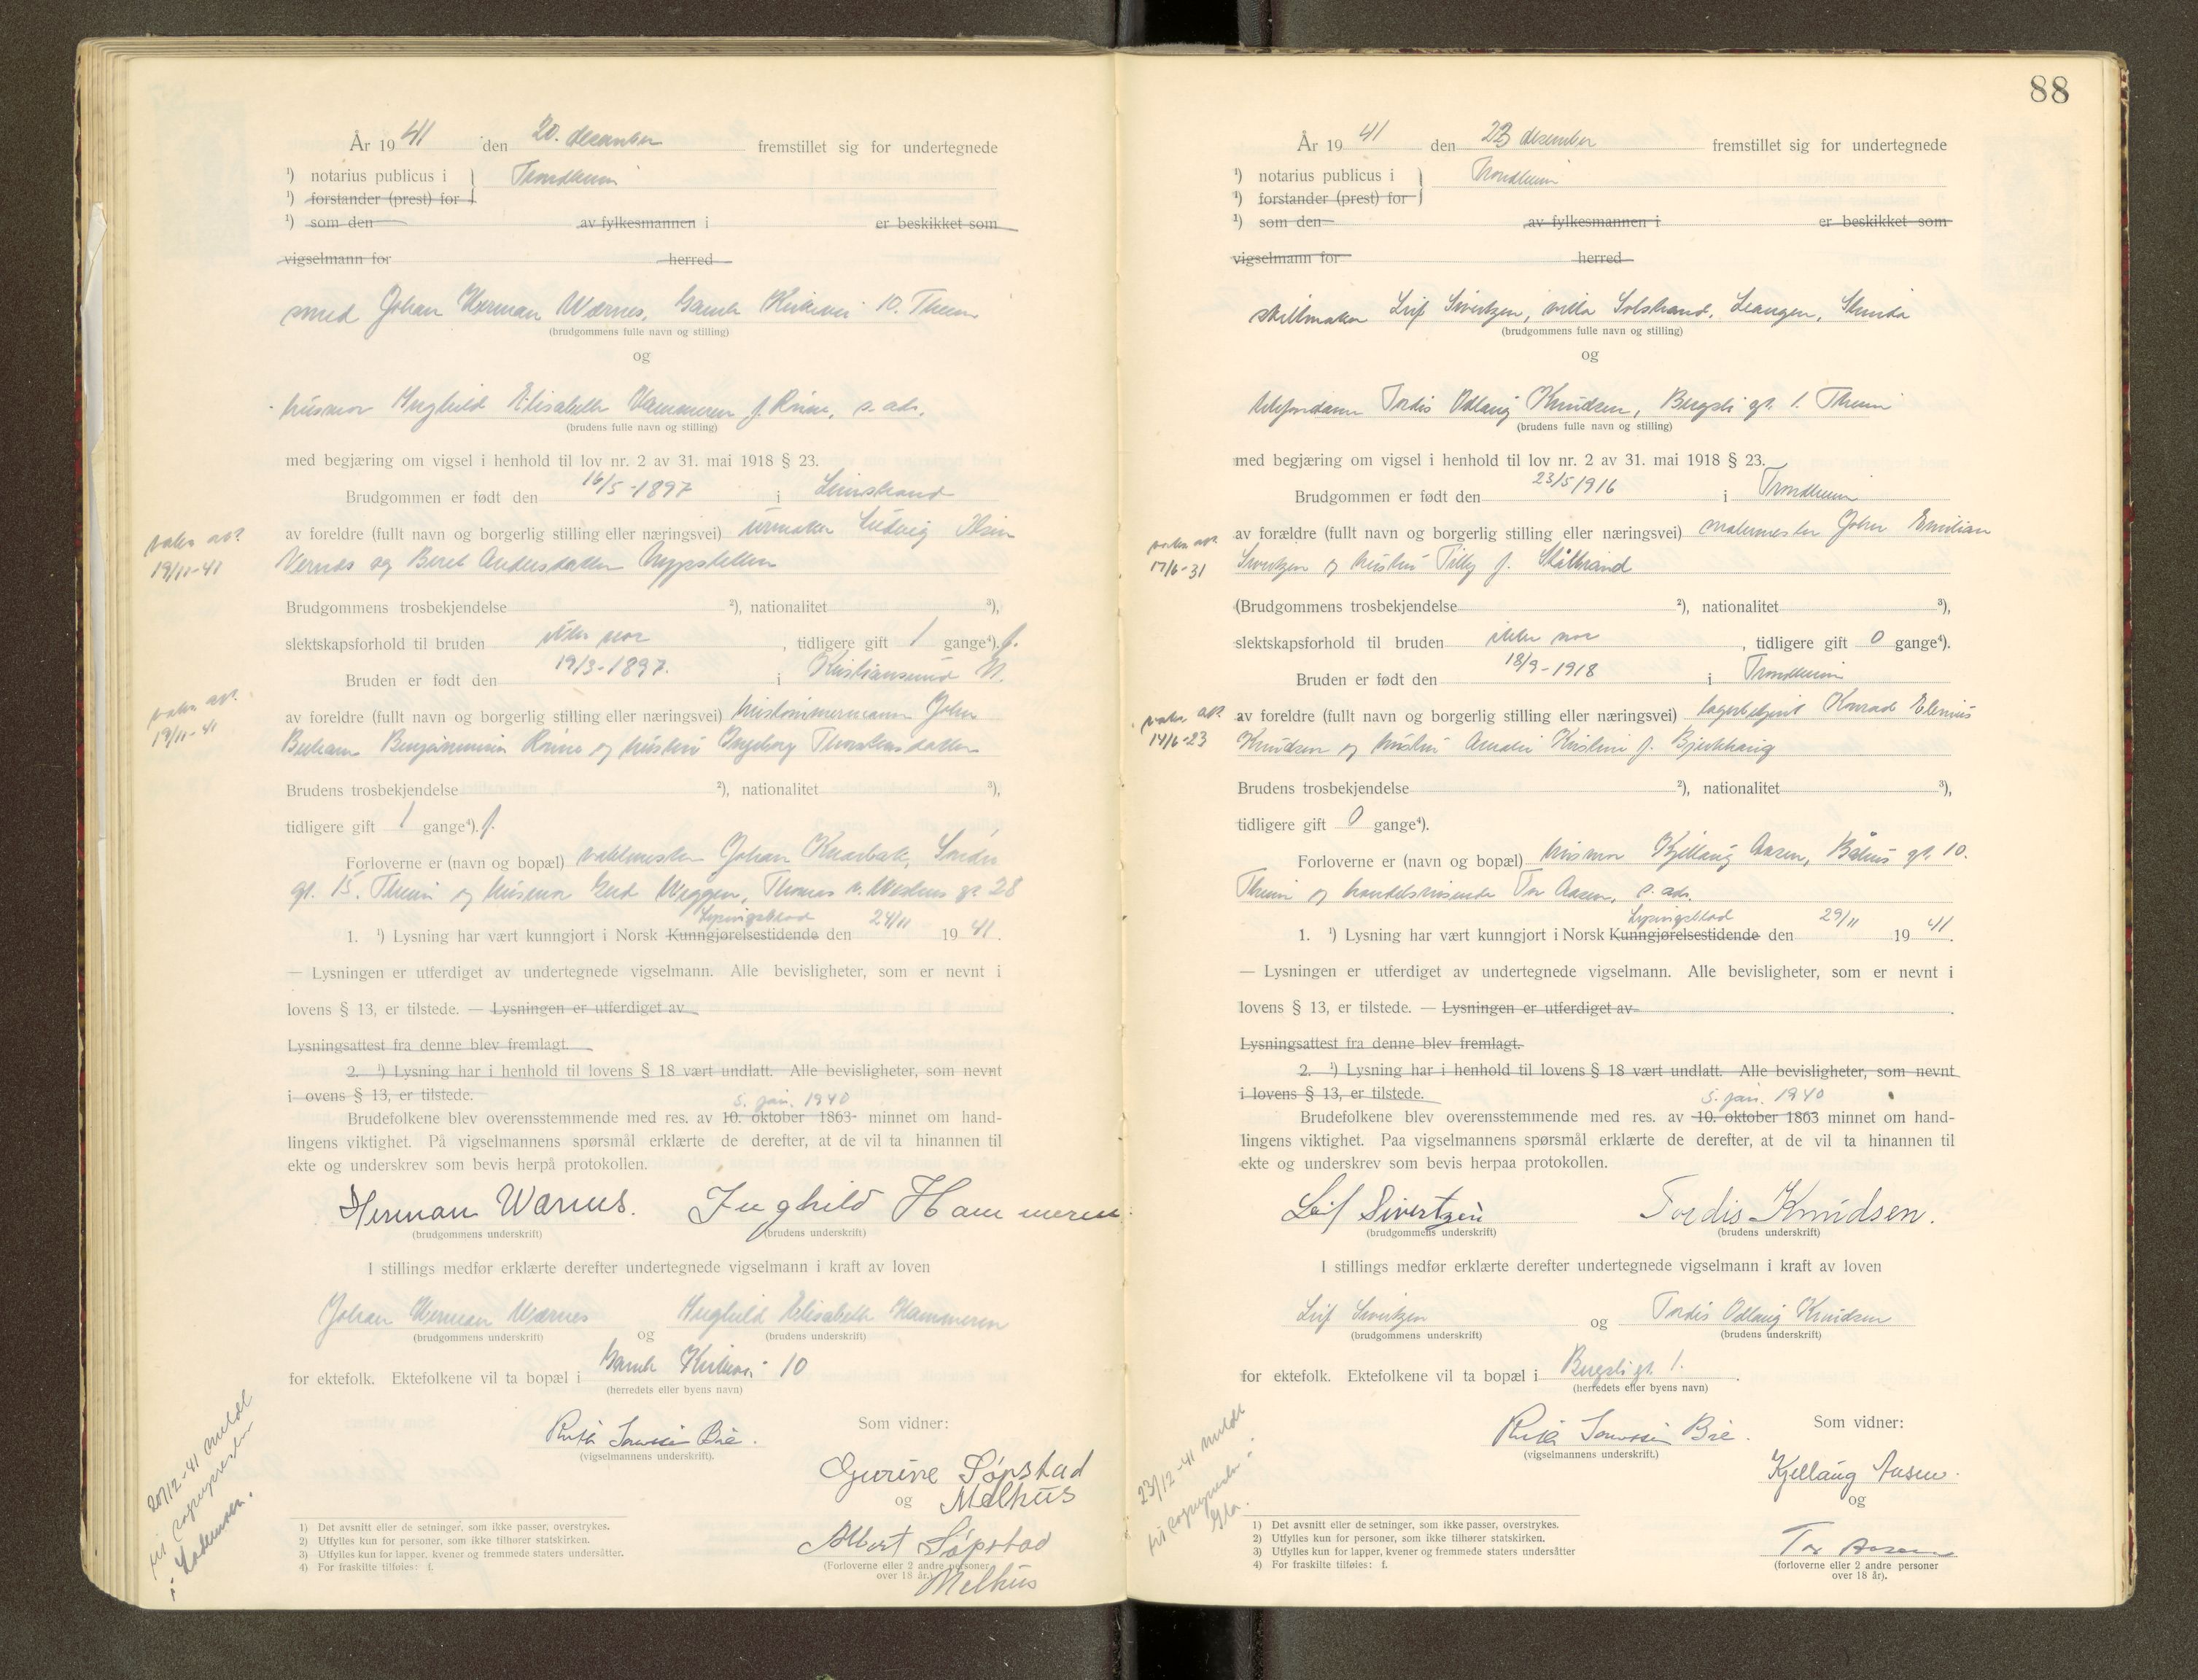 År 1941 den 20. desember fremstillet sig for undertegnede
¹) notarius publicus i } Trondheim
¹) forstander (prest) for
¹) som den av fylkesmannen i er beskikket som
vigselmann for herred
smed Johan Herman Wærnes, Gamle Kirkevei 10. Theim
(brudgommens fulle navn og stilling)
og
husmor Inghild Elisabeth Hammeren f. Rinne, s. adr.
(brudens fulle navn og stilling)
med begjæring om vigsel i henhold til lov nr. 2 av 31. mai 1918 § 23.
Brudgommen er født den 16/5-1897 i Leinstrand
av foreldre (fullt navn og borgerlig stilling eller næringsvei) urmaker Ludvig
19/11-41
Vernes og Beret Andersdatter
Brudgommens trosbekjendelse ²), nationalitet ³),
slektskapsforhold til bruden ikke noe, tidligere gift 1 gange⁴). f.
Bruden er født den 19/3-1897. i Kristiansund N.
av foreldre (fullt navn og borgerlig stilling eller næringsvei) hustømmermann John
19/11-41
Benjaminsen Rinne og hustru Ingeborg
Brudens trosbekjendelse ²), nationalitet ³),
tidligere gift 1 gange⁴). f.
Forloverne er (navn og bopæl) vaktmester Johan Knarbak, Søndre
gt. 15. Theim og husmor Gud Weggen, Thomas v. Westens gt. 28
Lysingsblad
1. ¹) Lysning har vært kunngjort i Norsk Kunngjørelsestidende den 24/11 1941.
— Lysningen er utferdiget av undertegnede vigselmann. Alle bevisligheter, som er nevnt i
lovens § 13, er tilstede. — Lysningen er utferdiget av
Lysningsattest fra denne blev fremlagt.
2. ¹) Lysning har i henhold til lovens § 18 vært undlatt. Alle bevisligheter, som nevnt
i ovens § 13, er tilstede.
5. jan. 1940
Brudefolkene blev overensstemmende med res. av 10. oktober 1863 minnet om hand-
lingens viktighet. På vigselmannens spørsmål erklærte de derefter, at de vil ta hinannen til
ekte og underskrev som bevis herpå protokollen.
Herman Wærnes. Inghild Hammeren
(brudgommens underskrift) (brudens underskrift)
I stillings medfør erklærte derefter undertegnede vigselmann i kraft av loven
Johan Herman Wærnes og Inghild Elisabeth Hammeren
(brudgommens underskrift) (brudens underskrift)
for ektefolk. Ektefolkene vil ta bopæl i Gamle Kirkevei 10
(herredets eller byens navn)
Som vidner:
(vigselmannens underskrift).
Gurine Søpstad
og Melhus
Albert Søpstad
(Forloverne eller 2 andre personer
over 18 år).
Melhus
20/12-41 meldt
til sognepresten
i Lademoen.
1) Det avsnitt eller de setninger, som ikke passer, overstrykes.
2) Utfylles kun for personer, som ikke tilhører statskirken.
3) Utfylles kun for lapper, kvener og fremmede staters undersåtter.
4) For fraskilte tilføies: f.
88
År 1941 den 23 desember fremstillet sig for undertegnede
¹) notarius publicus i } Trondheim
¹) forstander (prest) for
¹) som den av fylkesmannen i er beskikket som
vigselmann for herred
skiltmaker Leif Sivertzen, villa Solstrand, Leangen, Strinda
(brudgommens fulle navn og stilling)
og
telefondame Tordis Odlaug Knudsen, Bergsli gt. 1. Theim
(brudens fulle navn og stilling)
med begjæring om vigsel i henhold til lov nr. 2 av 31. mai 1918 § 23.
Brudgommen er født den 23/5 1916 i Trondheim
av forældre (fullt navn og borgerlig stilling eller næringsvei) malermester John Emilian
17/6-31
Sivertzen og hustru Tilly f. Skålbrand
(Brudgommens trosbekjendelse ²), nationalitet ³),
slektskapsforhold til bruden ikke noe, tidligere gift 0 gange⁴).
Bruden er født den 18/9-1918 i Trondheim
av foreldre (fullt navn og borgerlig stilling eller næringsvei) lagerbetjent Konrad Elenius
14/6-23
Knudsen og hustru Amalie Kristine f. Bjerkhaug
Brudens trosbekjendelse ²), nationalitet ³),
tidligere gift 0 gange⁴).
Forloverne er (navn og bopæl) husmor Kjellaug Aasen, Båhus gt. 10.
Theim og handelsreisende Tor Aasen, s. adr.
Lysingsblad
1. ¹) Lysning har vært kunngjort i Norsk Kunngjørelsestidende den 29/11 1941.
— Lysningen er utferdiget av undertegnede vigselmann. Alle bevisligheter, som er nevnt i
lovens § 13, er tilstede. — Lysningen er utferdiget av
Lysningsattest fra denne blev fremlagt.
2. ¹) Lysning har i henhold til lovens § 18 vært undlatt. Alle bevisligheter, som nevnt
i lovens § 13, er tilstede.
5. jan. 1940
Brudefolkene blev overensstemmende med res. av 10. oktober 1863 minnet om hand-
lingens viktighet. Paa vigselmannens spørsmål erklærte de derefter, at de vil ta hinannen til
ekte og underskrev som bevis herpaa protokollen.
Leif Sivertzen Tordis Knudsen.
(brudgommens underskrift) (brudens underskrift)
I stillings medfør erklærte derefter undertegnede vigselmann i kraft av loven
Leif Sivertzen og Tordis Odlaug Knudsen
(brudgommens underskrift) (brudens underskrift)
for ektefolk. Ektefolkene vil ta bopæl i Bergsli gt. 1.
(herredets eller byens navn)
Som vidner:
(vigselmannens underskrift.)
Kjellaug Aasen.
og
Tor Aasen
(forloverne eller 2 andre personer
over 18 år).
23/12-41 meldt
til sognepresten i
Ila.
1) Det avsnitt eller de setninger, som ikke passer, overstrykes.
2) Utfylles kun for personer, som ikke tilhører statskirken.
3) Utfylles kun for lapper, kvener og fremmede staters undersåtter
4) For fraskilte tilføies: f.